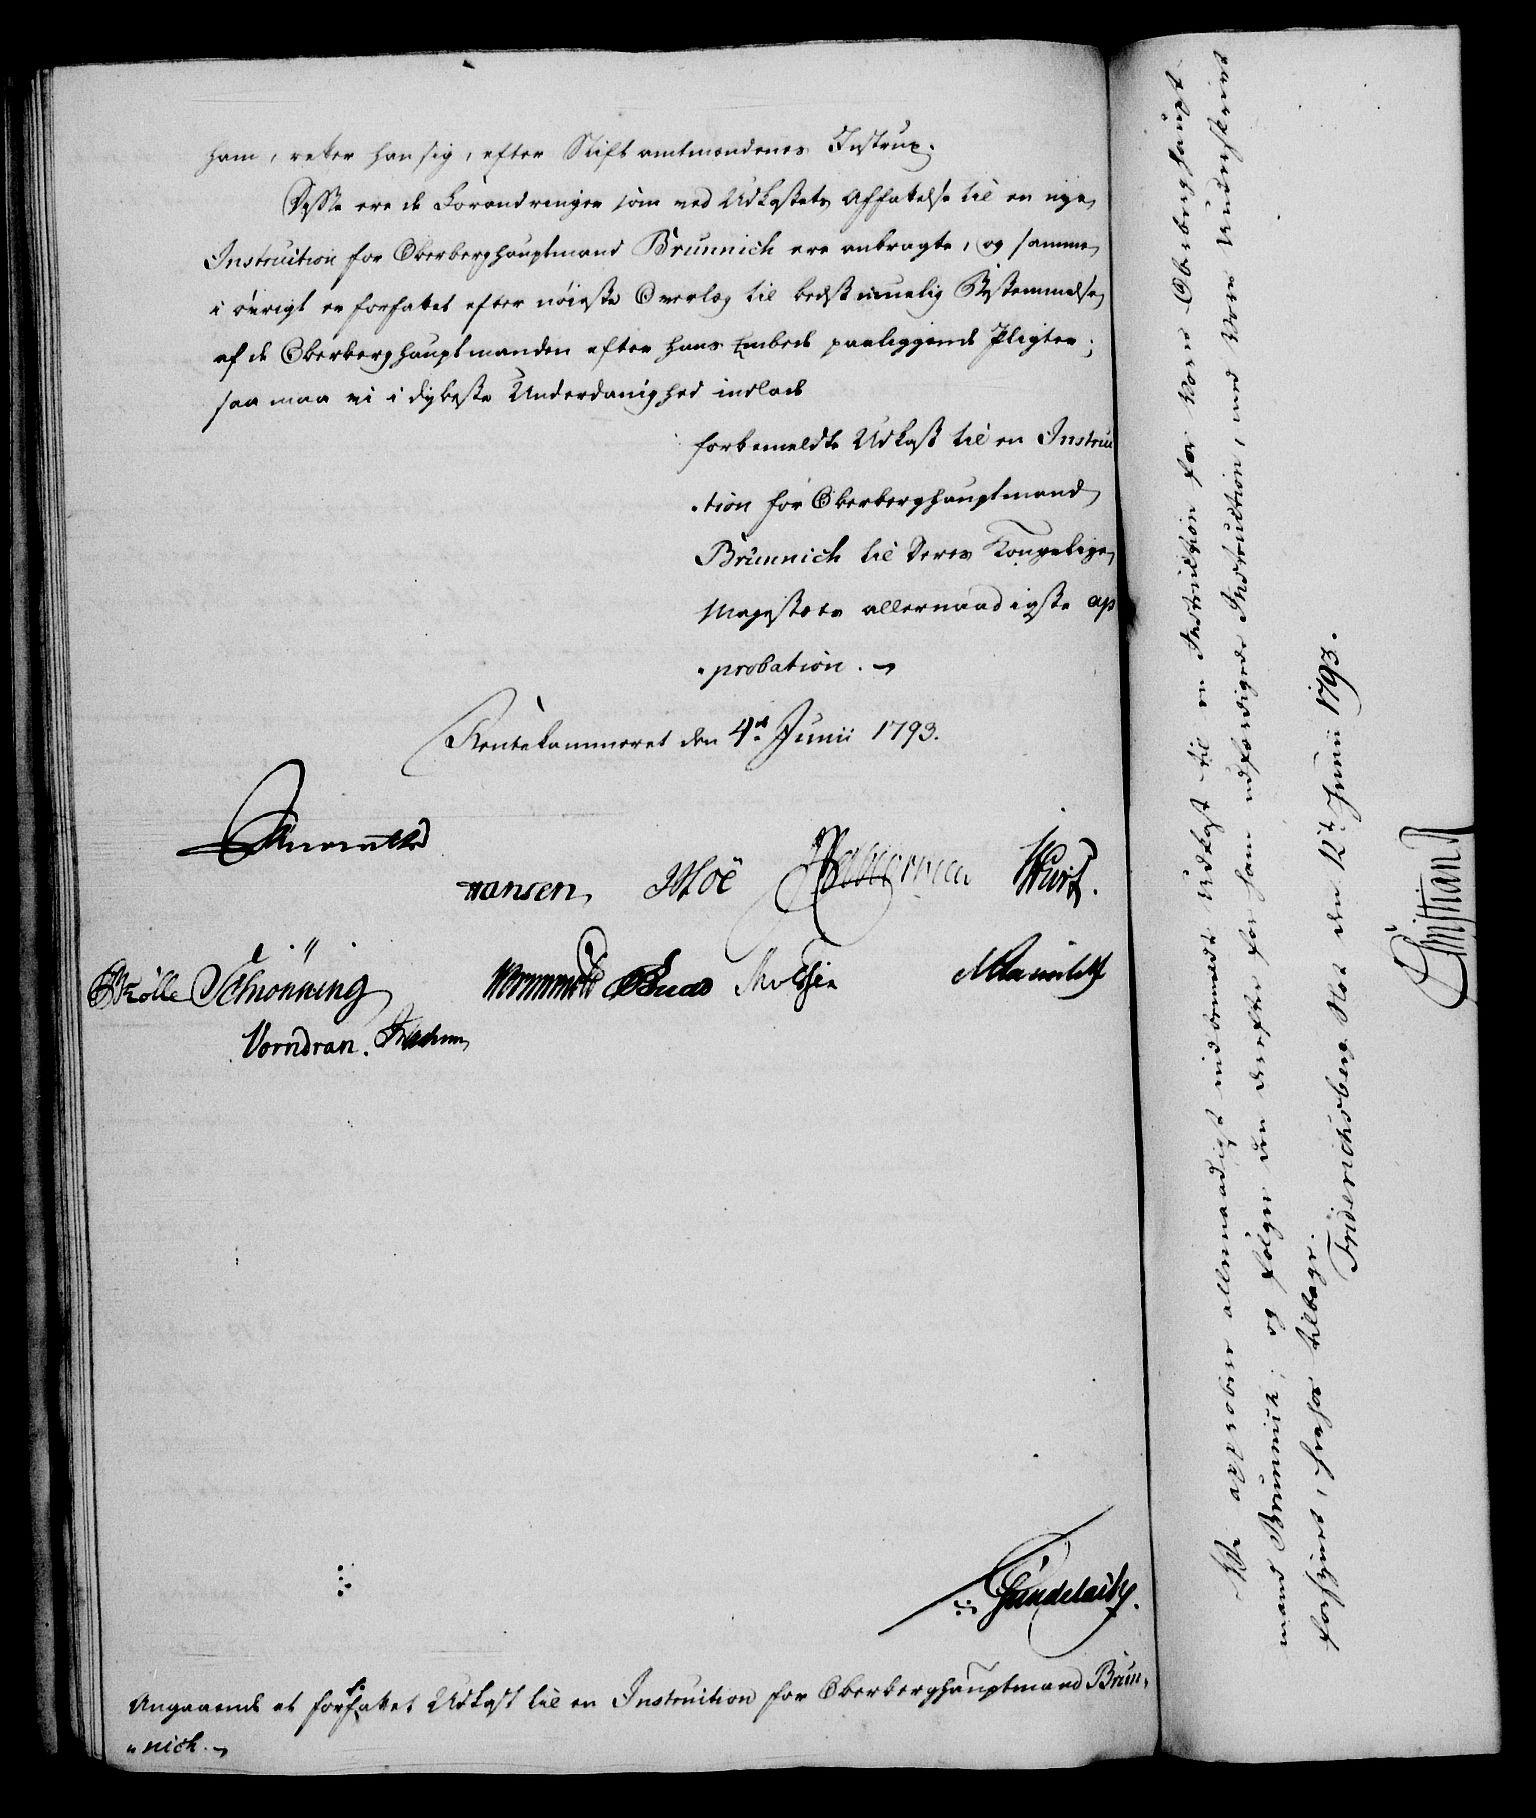 ham, retter han sig, efter Stiftamtmandenes Instrux.
Disse ere de Forandringer som ved Udkastets Affattelse til en nye
Instruction for Oberberghauptmand Brünnich ere anbragte, og samme
i øvrigt er forfattet efter nøieste Overlæg til bedst muelig Bestemmelse
af de Oberberghauptmanden efter hans Embede paaliggende Pligter;
saa maa vi i dybeste Underdanighed indlade
forbemeldte Udkast til en Instruc
-tion for Oberberghauptmand
Brünnich til Deres Kongelige
Majestæts allernaadigste ap
-probation.
Rentekammeret den 4de Junii 1793.
Hansen Moë Wiurf.
Schiönning
Vorndran.
Angaaende et forfattet Udkast til en Instruction for Oberberghauptmand Brün-
-nich.
Vi approbere allernaadigst indbemeldte Udkast til en Instruktion for Vores Oberberghaupt-
mand Brünnich; og følger den derefter for ham udfærdigede Instruction, med Vores Underskrivt
forsynet, herhos tilbage.
Friderichsberg Slot den 12te Junii 1793.
Christian